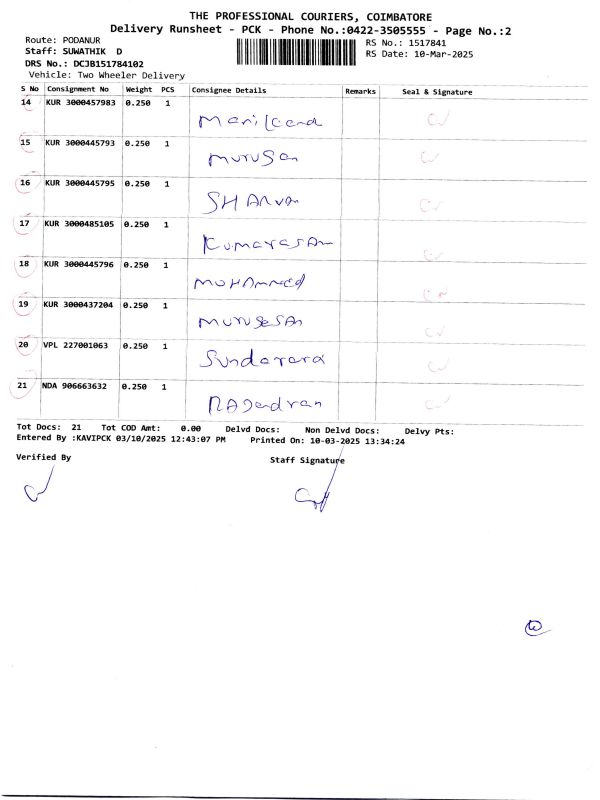 THE PROFESSIONAL COURIERS, COIMBATORE
Delivery Runsheet - PCK - Phone No.:0422-3505555 - Page No.:2
Route: PODANUR RS No.: 1517841
Staff: SUWATHIK D RS Date: 10-Mar-2025
DRS No.: DCJB151784102
Vehicle: Two Wheeler Delivery
S No Consignment No Weight PCS Consignee Details Remarks Seal & Signature
14 KUR 3000457983 0.250 1
15 KUR 3000445793 0.250 1
Murugan
16 KUR 3000445795 0.250 1
SHARVAN
17 KUR 3000485105 0.250 1
Kumaragan
18 KUR 3000445796 0.250 1
MUHAmmed
19 KUR 3000437204 0.250 1
MurugeSAn
20 VPL 227001063 0.250 1
Sundarara
21 NDA 906663632 0.250 1
RAJendran
Tot Docs: 21 Tot COD Amt: 0.00 Delvd Docs: Non Delvd Docs: Delvy Pts:
Entered By :KAVIPCK 03/10/2025 12:43:07 PM Printed On: 10-03-2025 13:34:24
Verified By Staff Signature